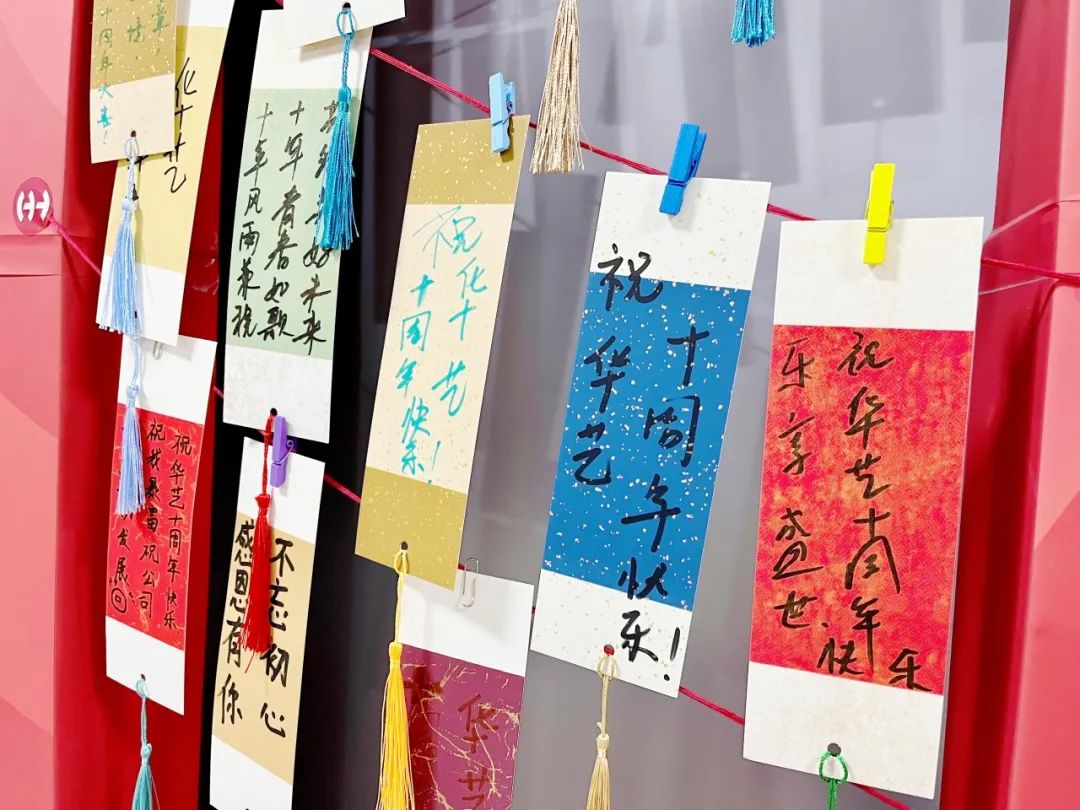 十周年大喜!
华艺
十年风雨兼程
十年青春如歌
好未来
祝华艺
十周年快乐!
祝华艺
十周年快乐!
祝华艺十周年快乐
乐享盛世.
祝华艺十周年快乐.
祝我暴富 祝公司
发展
不忘初心
感恩有你
华艺